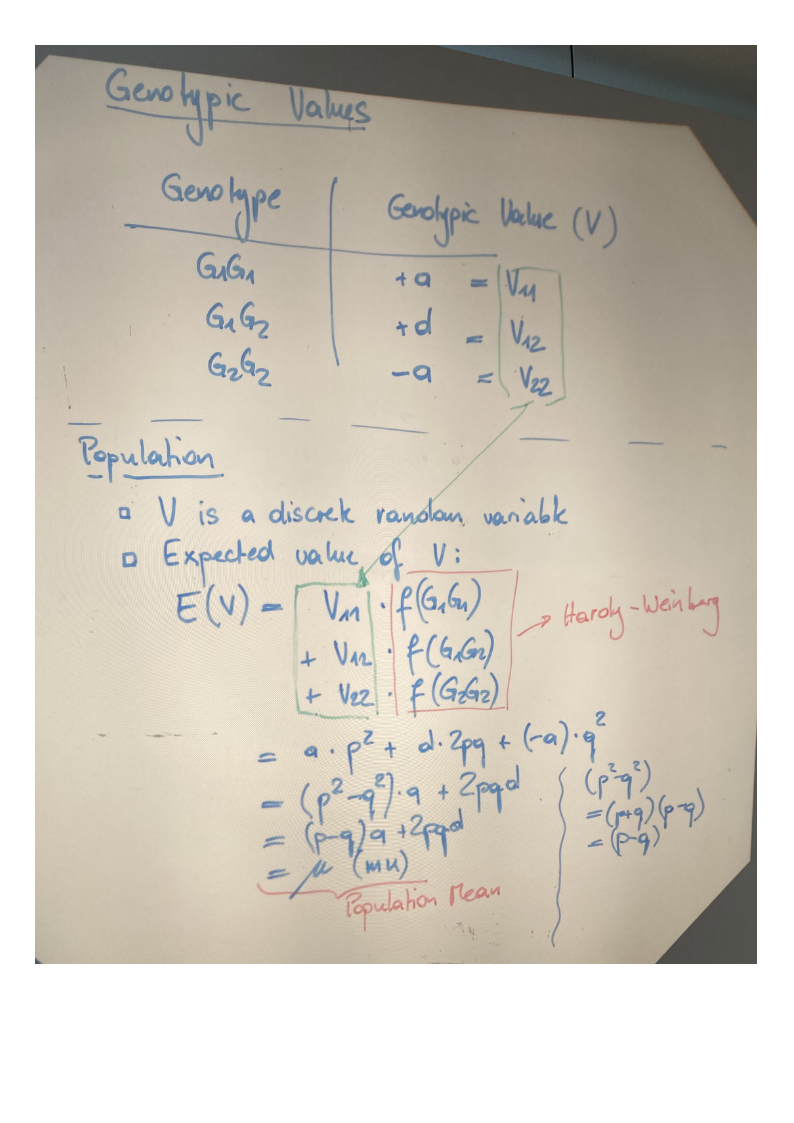 Genotypic Values
Genotype | Genotypic Value (V)
G₁G₁ | +a = V₁₁
G₁G₂ | +d = V₁₂
G₂G₂ | -a = V₂₂
Population
▫ V is a discrete random variable
▫ Expected value of V:
E(V) = V₁₁ · f(G₁G₁)
+ V₁₂ · f(G₁G₂)
+ V₂₂ · f(G₂G₂)
→ Hardy-Weinberg
= a · p² + d · 2pq + (-a) · q²
= (p²-q²) · a + 2pqd
= (p-q)a + 2pqd
= μ (mu)
Population Mean
(p²-q²)
= (p+q)(p-q)
= (p-q)